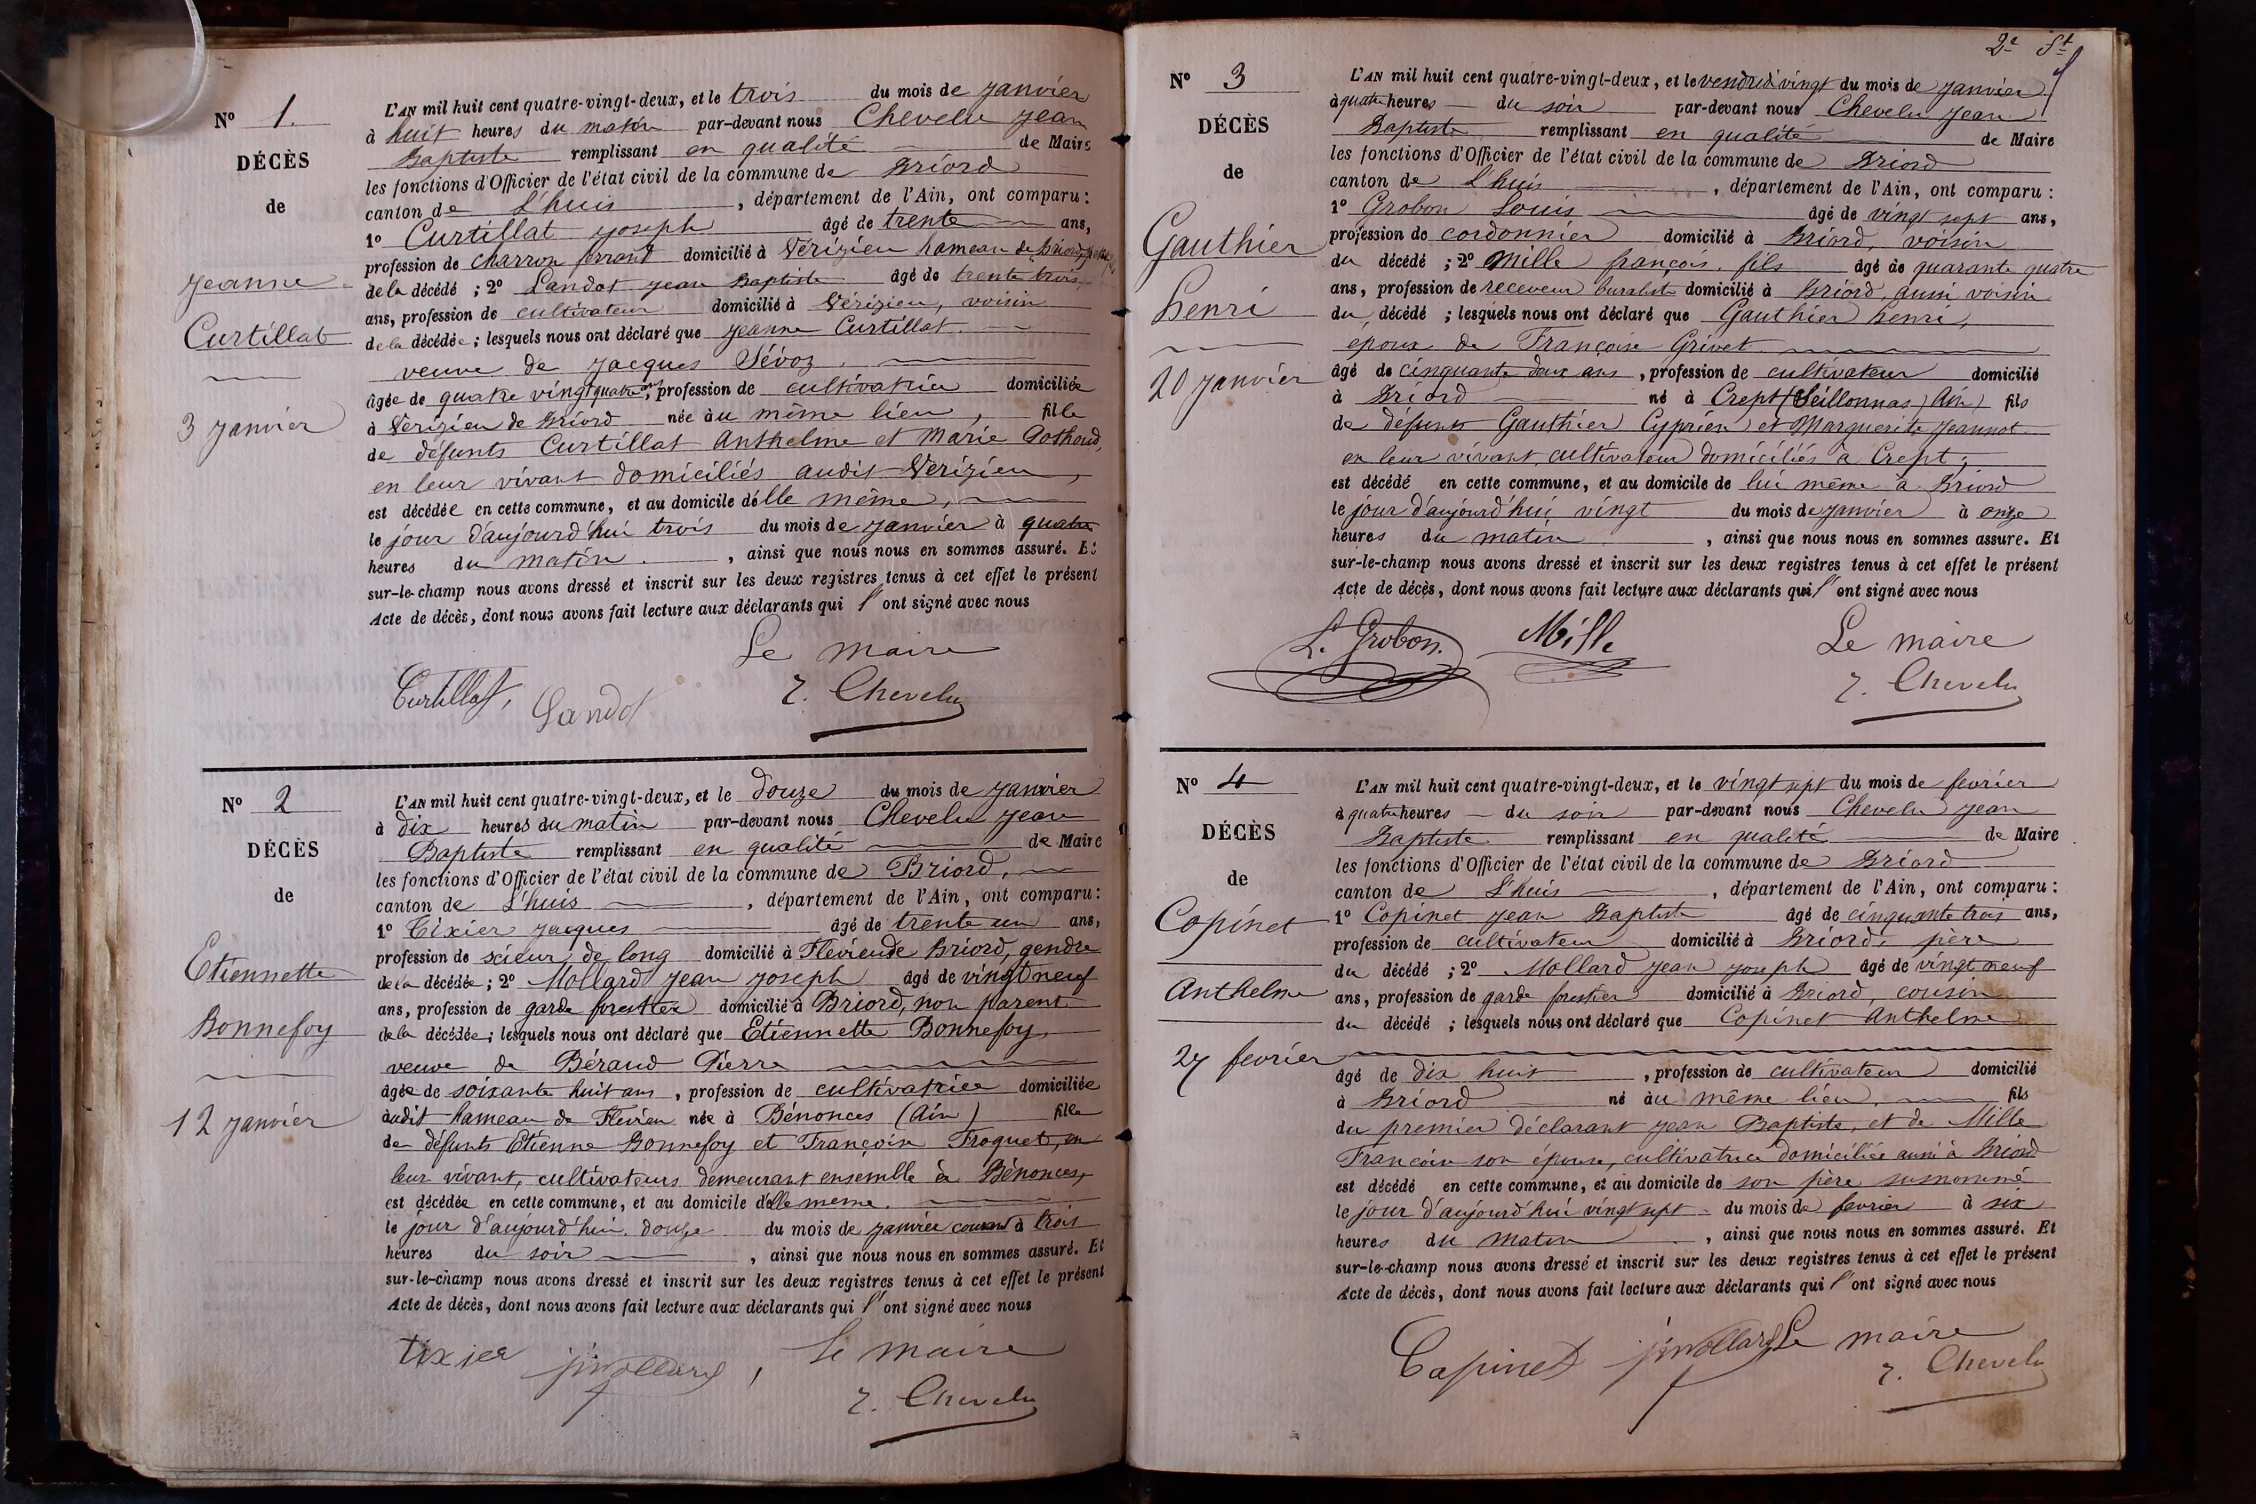 N° 1.
DÉCÈS
de
Jeanne
Curtillat
3 janvier
L'AN mil huit cent quatre-vingt-deux, et le trois du mois de janvier
à huit heures du matin par-devant nous Chevelu Jean
Baptiste remplissant en qualité de Maire
les fonctions d'Officier de l'état civil de la commune de Briord
canton de L'huis, département de l'Ain, ont comparu :
1° Curtillat Joseph âgé de trente ans,
profession de charron ferrant domicilié à Vérizieu hameau de Briord,
de la décédé ; 2° Landot Jean Baptiste âgé de trente trois
ans, profession de cultivateur domicilié à Vérizieu, voisin
de la décédée ; lesquels nous ont déclaré que Jeanne Curtillat
veuve de Jacques Sévoz
âgée de quatre vingt quatre ans, profession de cultivatrice domiciliée
à Verizieu de Briord née au même lieu, fille
de défunts Curtillat Anthelme et Marie
en leur vivant domiciliés audit Verizieu,
est décédée en cette commune, et au domicile d'elle même,
le jour d'aujourd'hui trois du mois de janvier à quatre
heures du matin, ainsi que nous nous en sommes assuré. Et
sur-le-champ nous avons dressé et inscrit sur les deux registres tenus à cet effet le présent
Acte de décès, dont nous avons fait lecture aux déclarants qui l'ont signé avec nous
Le maire
Curtillat, Landot J. Chevelu
N° 2
DÉCÈS
de
Etiennette
Bonnefoy
12 janvier
L'AN mil huit cent quatre-vingt-deux, et le douze du mois de janvier
à dix heures du matin par-devant nous Chevelu Jean
Baptiste remplissant en qualité de Maire
les fonctions d'Officier de l'état civil de la commune de Briord,
canton de L'huis, département de l'Ain, ont comparu :
1° Tixier Jacques âgé de trente un ans,
profession de scieur de long domicilié à Flevieu de Briord, gendre
de la décédée ; 2° Mollard Jean Joseph âgé de vingt neuf
ans, profession de garde forestier domicilié à Briord, non parent
de la décédée ; lesquels nous ont déclaré que Etiennette Bonnefoy,
veuve de Béraud Pierre
âgée de soixante huit ans, profession de cultivatrice domiciliée
audit hameau de Flevieu née à Bénonces (Ain) fille
de défunts Etienne Bonnefoy et Françoise Froquet, en
leur vivant, cultivateurs demeurant ensemble à Bénonces,
est décédée en cette commune, et au domicile d'elle meme.
le jour d'aujourd'hui douze du mois de janvier courant à trois
heures du soir, ainsi que nous nous en sommes assuré. Et
sur-le-champ nous avons dressé et inscrit sur les deux registres tenus à cet effet le présent
Acte de décès, dont nous avons fait lecture aux déclarants qui l'ont signé avec nous
tixier jjmollard, Le maire
J. Chevelu
2e ft
N° 3
DÉCÈS
de
Gauthier
henri
20 janvier
L'AN mil huit cent quatre-vingt-deux, et le vendredi vingt du mois de janvier
à quatre heures du soir par-devant nous Chevelu Jean
Baptiste remplissant en qualité de Maire
les fonctions d'Officier de l'état civil de la commune de Briord
canton de L'huis, département de l'Ain, ont comparu :
1° Grobon Louis âgé de vingt sept ans,
profession de cordonnier domicilié à Briord, voisin
du décédé ; 2° Mille françois, fils âgé de quarante quatre
ans, profession de receveur buraliste domicilié à Briord, aussi voisin
du décédé ; lesquels nous ont déclaré que Gauthier henri,
epoux de Françoise Grivet
âgé de cinquante deux ans, profession de cultivateur domicilié
à Briord né à Crept (Seillonnas) Ain) fils
de défunts Gauthier Cyprien et Marguerite Jeannot
en leur vivant, cultivateurs domiciliés à Crept ;
est décédé en cette commune, et au domicile de lui même à Briord
le jour d'aujourd'hui vingt du mois de janvier à onze
heures du matin, ainsi que nous nous en sommes assuré. Et
sur-le-champ nous avons dressé et inscrit sur les deux registres tenus à cet effet le présent
Acte de décès, dont nous avons fait lecture aux déclarants qui l'ont signé avec nous
L. Grobon. Mille Le maire
J. Chevelu
N° 4
DÉCÈS
de
Copinet
Anthelme
27 fevrier
L'AN mil huit cent quatre-vingt-deux, et le vingt sept du mois de fevrier
à quatre heures du soir par-devant nous Chevelu Jean
Baptiste remplissant en qualité de Maire
les fonctions d'Officier de l'état civil de la commune de Briord
canton de L'huis, département de l'Ain, ont comparu :
1° Copinet Jean Baptiste âgé de cinquante trois ans,
profession de cultivateur domicilié à Briord, père
du décédé ; 2° Mollard Jean Joseph âgé de vingt neuf
ans, profession de garde forestier domicilié à Briord, cousin
du décédé ; lesquels nous ont déclaré que Copinet Anthelme
âgé de dix huit, profession de cultivateur domicilié
à Briord né au même lieu, fils
du premier déclarant Jean Baptiste, et de Mille
Françoise son épouse, cultivatrice domiciliée aussi à Briord
est décédé en cette commune, et au domicile de son père susnommé
le jour d'aujourd'hui vingt sept du mois de fevrier à six
heures du matin, ainsi que nous nous en sommes assuré. Et
sur-le-champ nous avons dressé et inscrit sur les deux registres tenus à cet effet le présent
Acte de décès, dont nous avons fait lecture aux déclarants qui l'ont signé avec nous
Copinet jjmollard Le maire
J. Chevelu